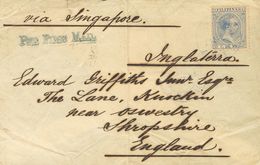 via Singapore.
FILIPINAS
PER FIRST MAIL
Inglaterra.
Edward Griffiths Junr. Esqre
The Lane, Knockin
near Oswestry
Shropshire
England.